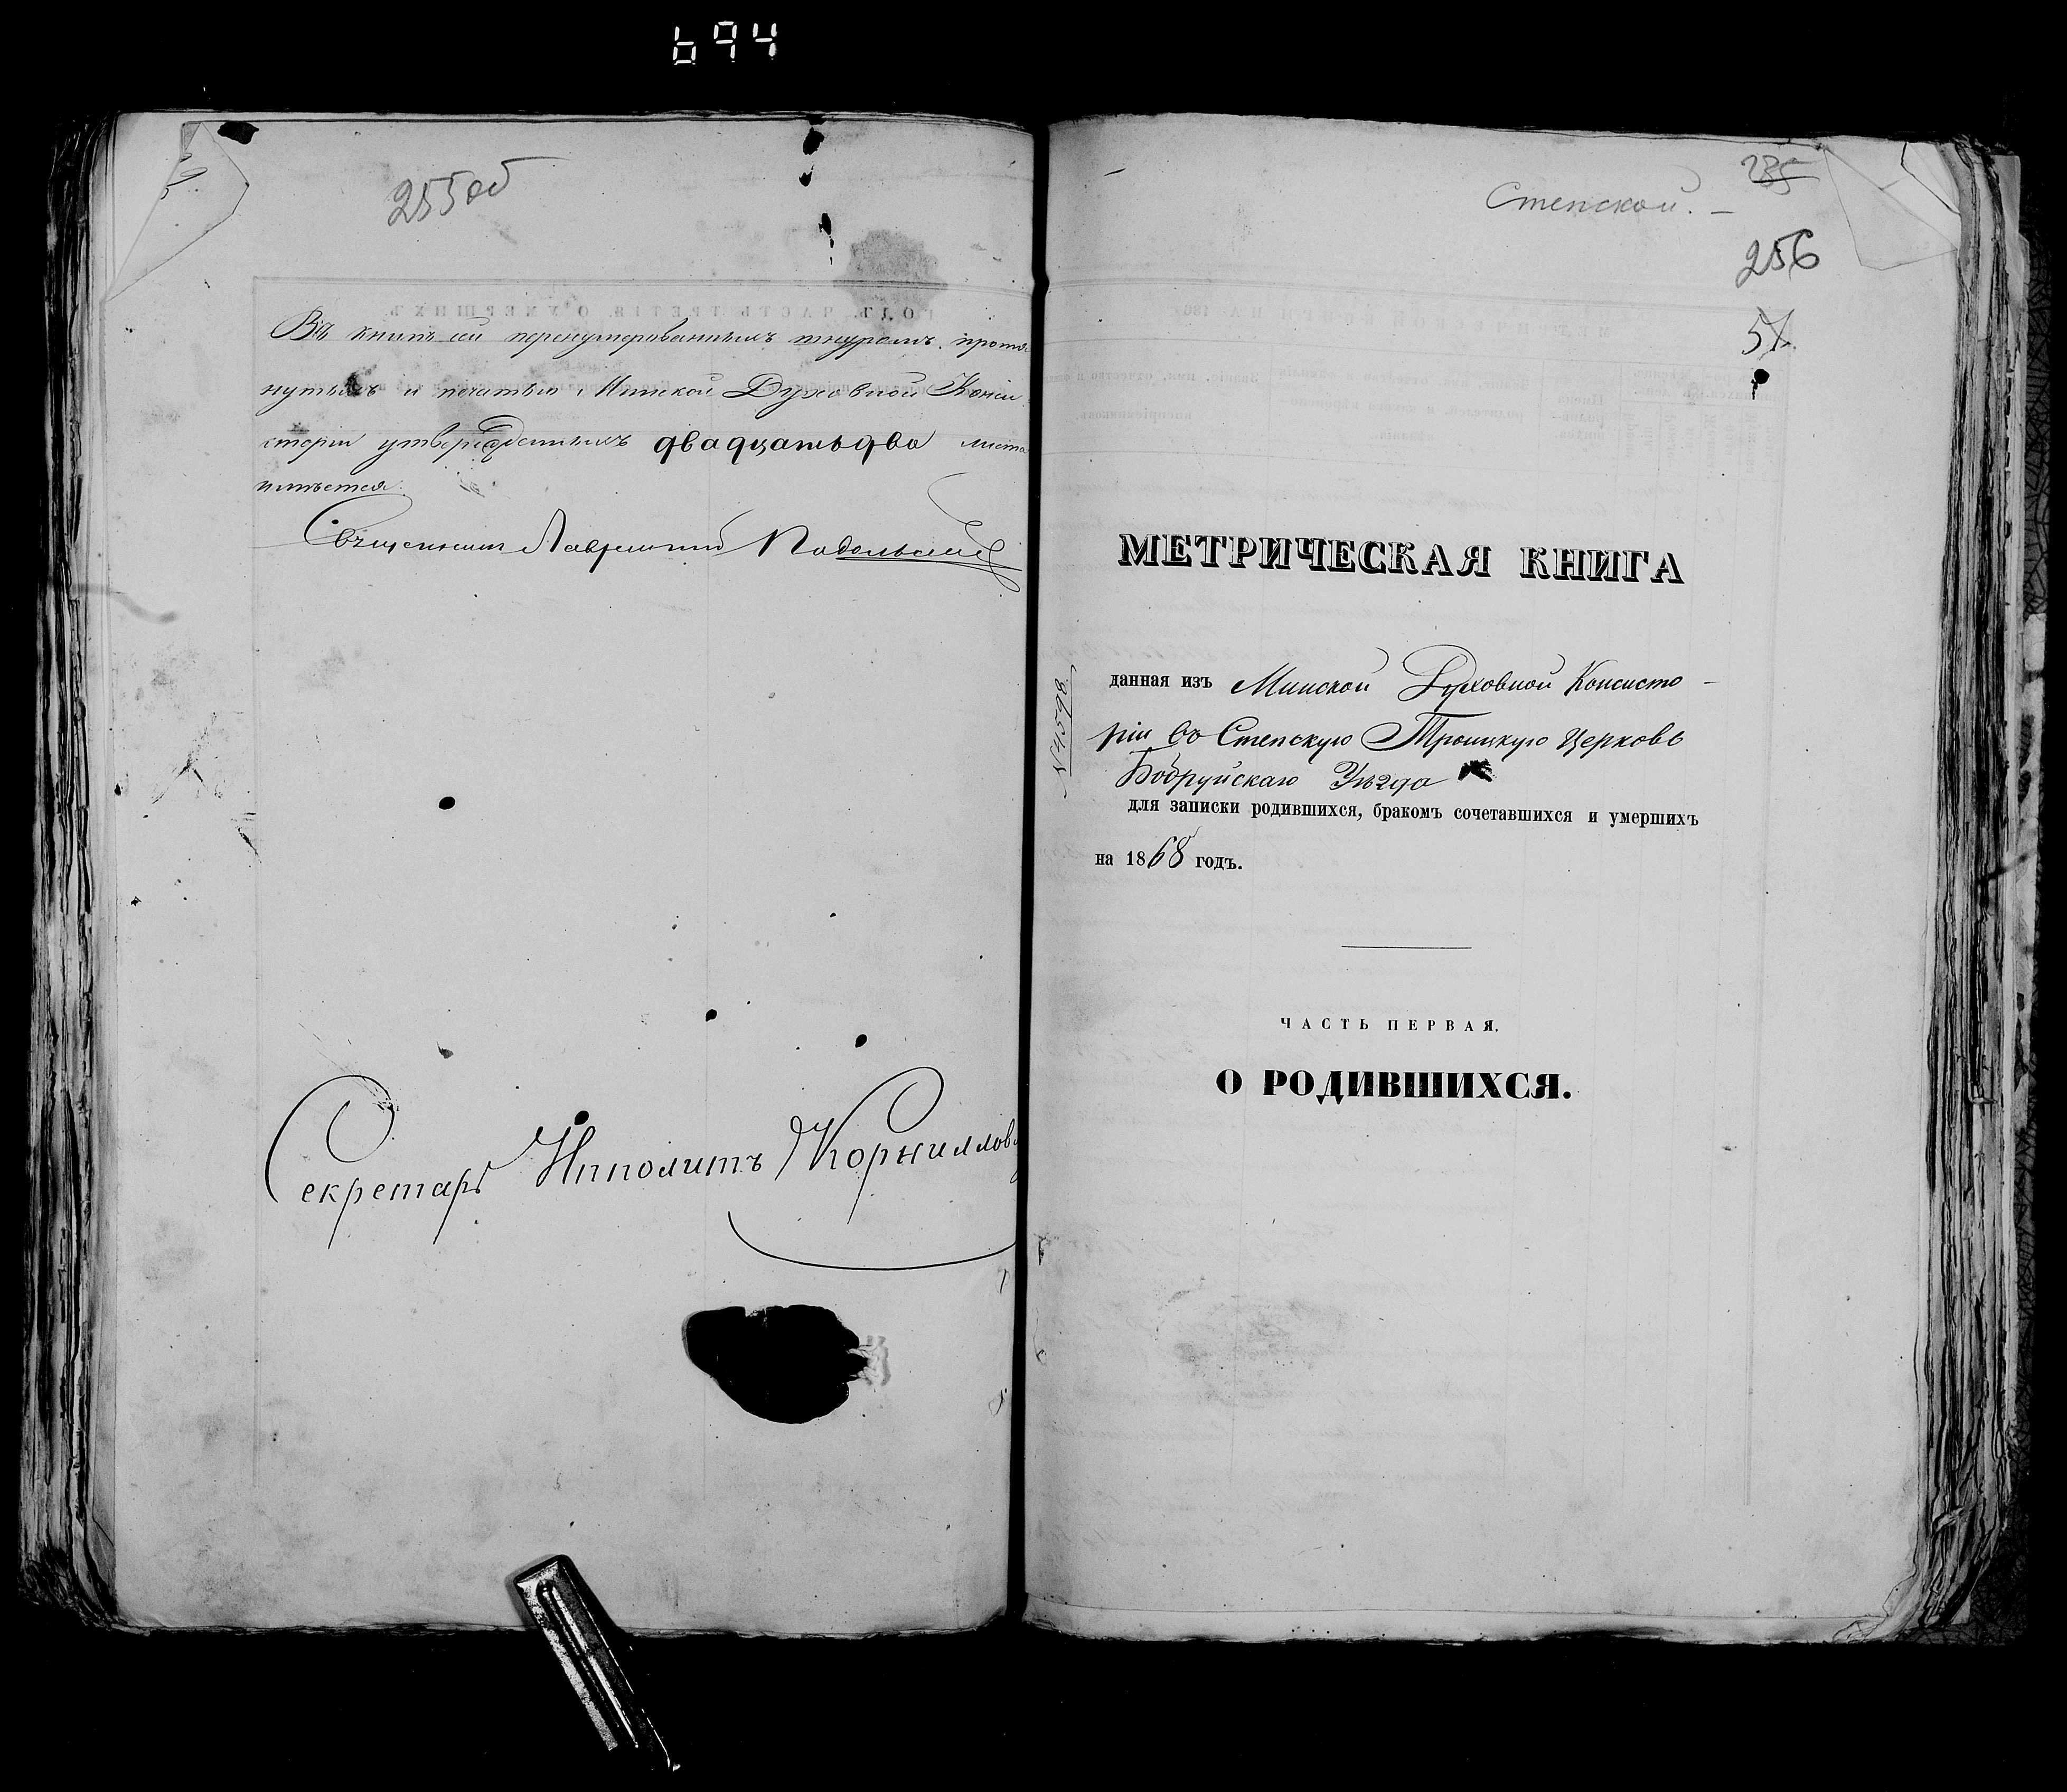 694
255об
Въ книгѣ сей перенумерованныхъ шнуромъ протя
нутыхъ и печатью Минской Духовной Конси
сторіи утвержденныхъ двадцатьдва листа
имѣется.
Священникъ Лаврентій Подольскій
Секретарь Ипполитъ Корнилов
Степской.
235
256
51
МЕТРИЧЕСКАЯ КНИГА
№ 4598
данная изъ Минской Духовной Консисто-
ріи въ Степскую Троицкую Церковь
Бобруйскаго Уѣзда
для записки родившихся, бракомъ сочетавшихся и умершихъ
на 1868 годъ.
ЧАСТЬ ПЕРВАЯ.
О РОДИВШИХСЯ.